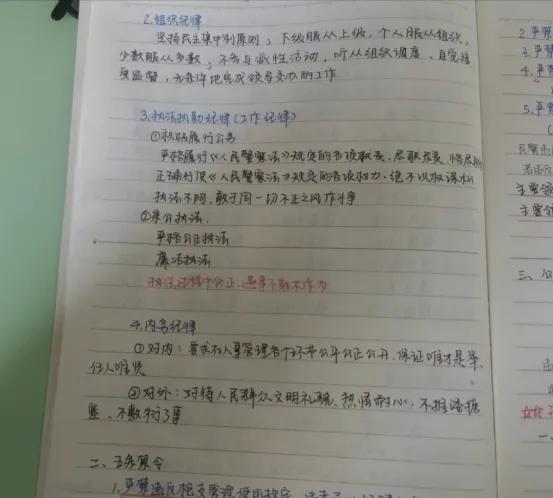 2.组织纪律
坚持民主集中制原则，下级服从上级，个人服从组织，
少数服从多数，不参与派性活动，听从组织调度、自觉接
受监督，无条件地完成领导交办的工作
3.执法执勤纪律(工作纪律)
①积极履行公务
严格履行《人民警察法》规定的各项职责，尽职尽责，恪尽职
正确行使《人民警察法》规定的各项权力，绝不以权谋私
执法不阿，敢于同一切不正之风作斗争
②秉公执法
严格公正执法
廉洁执法
执法过程中公正，遇事不能不作为
4.内务纪律
①对内：要求在人事管理各个环节公平公正公开，保证唯才是举
任人唯贤
②对外：对待人民群众文明礼貌、热情耐心，不推诿搪
塞、不敷衍了事
二、五条禁令
1.严禁违反枪支管理使用规定，
2.严禁
3.严禁
4.严禁
5.严禁
民警违
若违反
主要领
主要领
三、